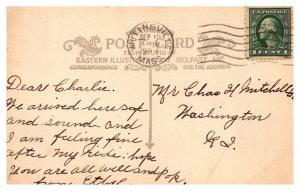 POST CARD
EASTERN ILLUSTRATING BELFAST
CORRESPONDENCE
FOR THE ADDRESS
MASS.
1 CENT 1
Dear Charlie.
We arrived here safe
and sound and
I am feeling fine
after my ride. hope
you are all well and
from Ethel
Mr Chas H Mitchell
Washington
R I